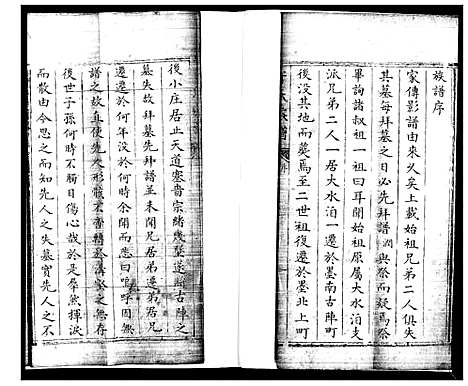 族譜序
家傳影譜由來久矣上載始祖兄弟二人俱失
其墓每拜墓之日必先拜譜潤與祭而疑焉祭
畢詢諸叔祖一祖曰耳聞始祖原屬大水泊一
派兄弟二人一居大水泊一遷於墨南古陣町
後沒其地而葬焉至二世祖復遷於墨北上町
後小庄居止天道塞嗇宗緒幾墜遂與古陣之
墓失故拜墓先拜譜並未聞兄居弟遷弟居兄
遷遷於何年沒於何時余聞而悲曰嗚呼固無
譜之故真使先人形骸不音轉於溝壑之無存
後世子孫何時不觸目傷心哉於是羣然揮淚
而散由今思之而知先人之失墓實先人之不